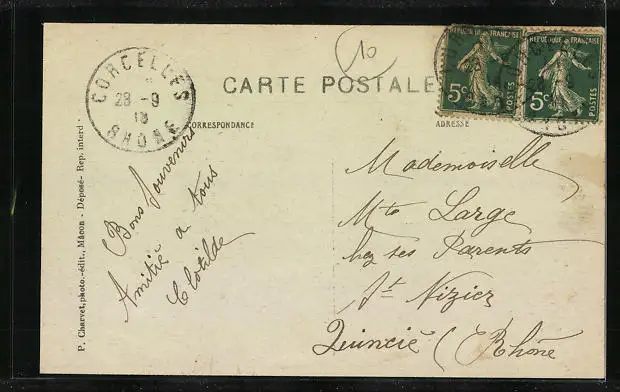 10
CORCELLES
28 -9
18
RHONE
CARTE POSTALE
REPUBLIQUE FRANÇAISE
5c
POSTES
REPUBLIQUE FRANÇAISE
5c
POSTES
CORRESPONDANCE
ADRESSE
Bons Souvenirs
Amitié a tous
Clotilde
Mademoiselle
Mte Large
hez ses Parents
St Nizier
Quincié (Rhône
P. Charvet, photo.-édit., Mâcon - Déposé- Rep. interd